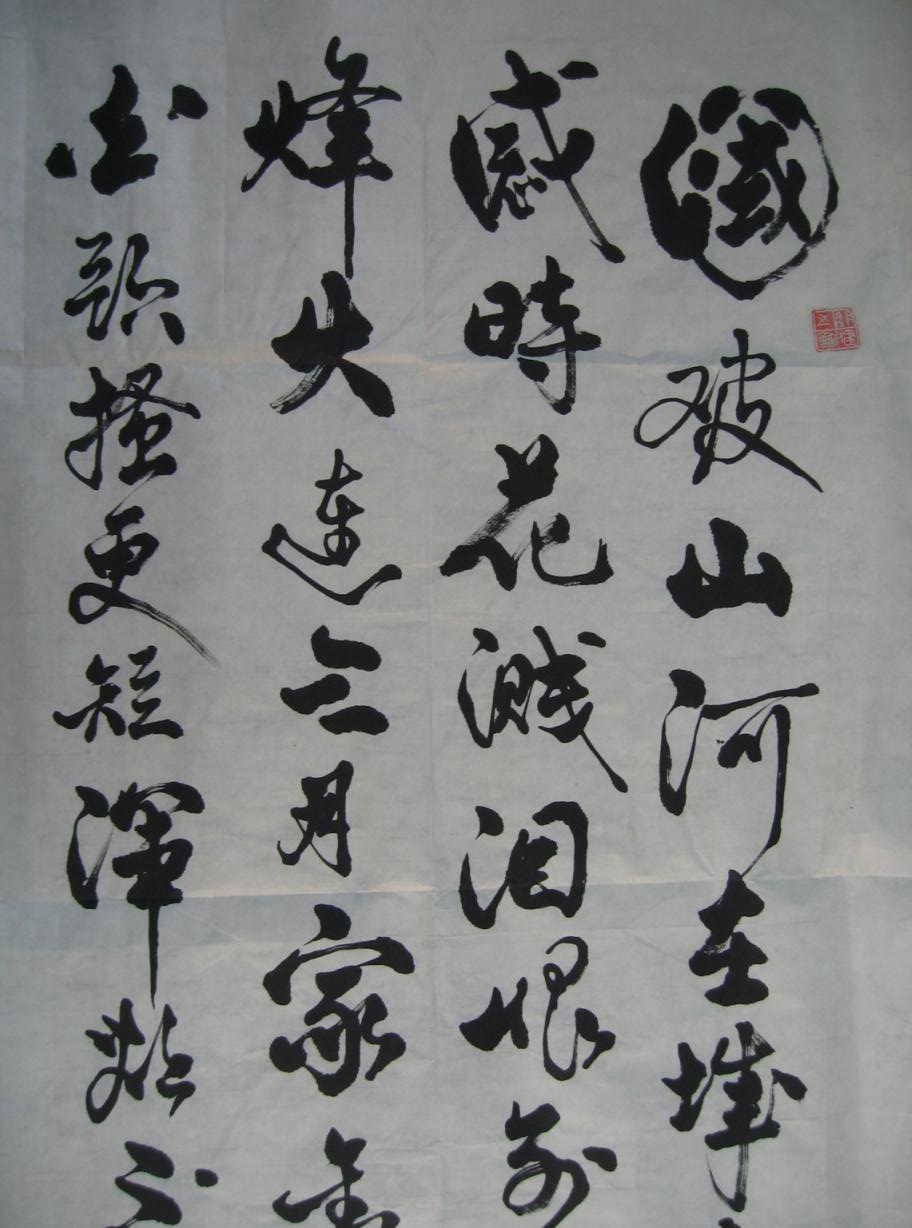 國破山河在城
感時花濺泪恨别
烽火連三月家
白頭搔更短渾欲不